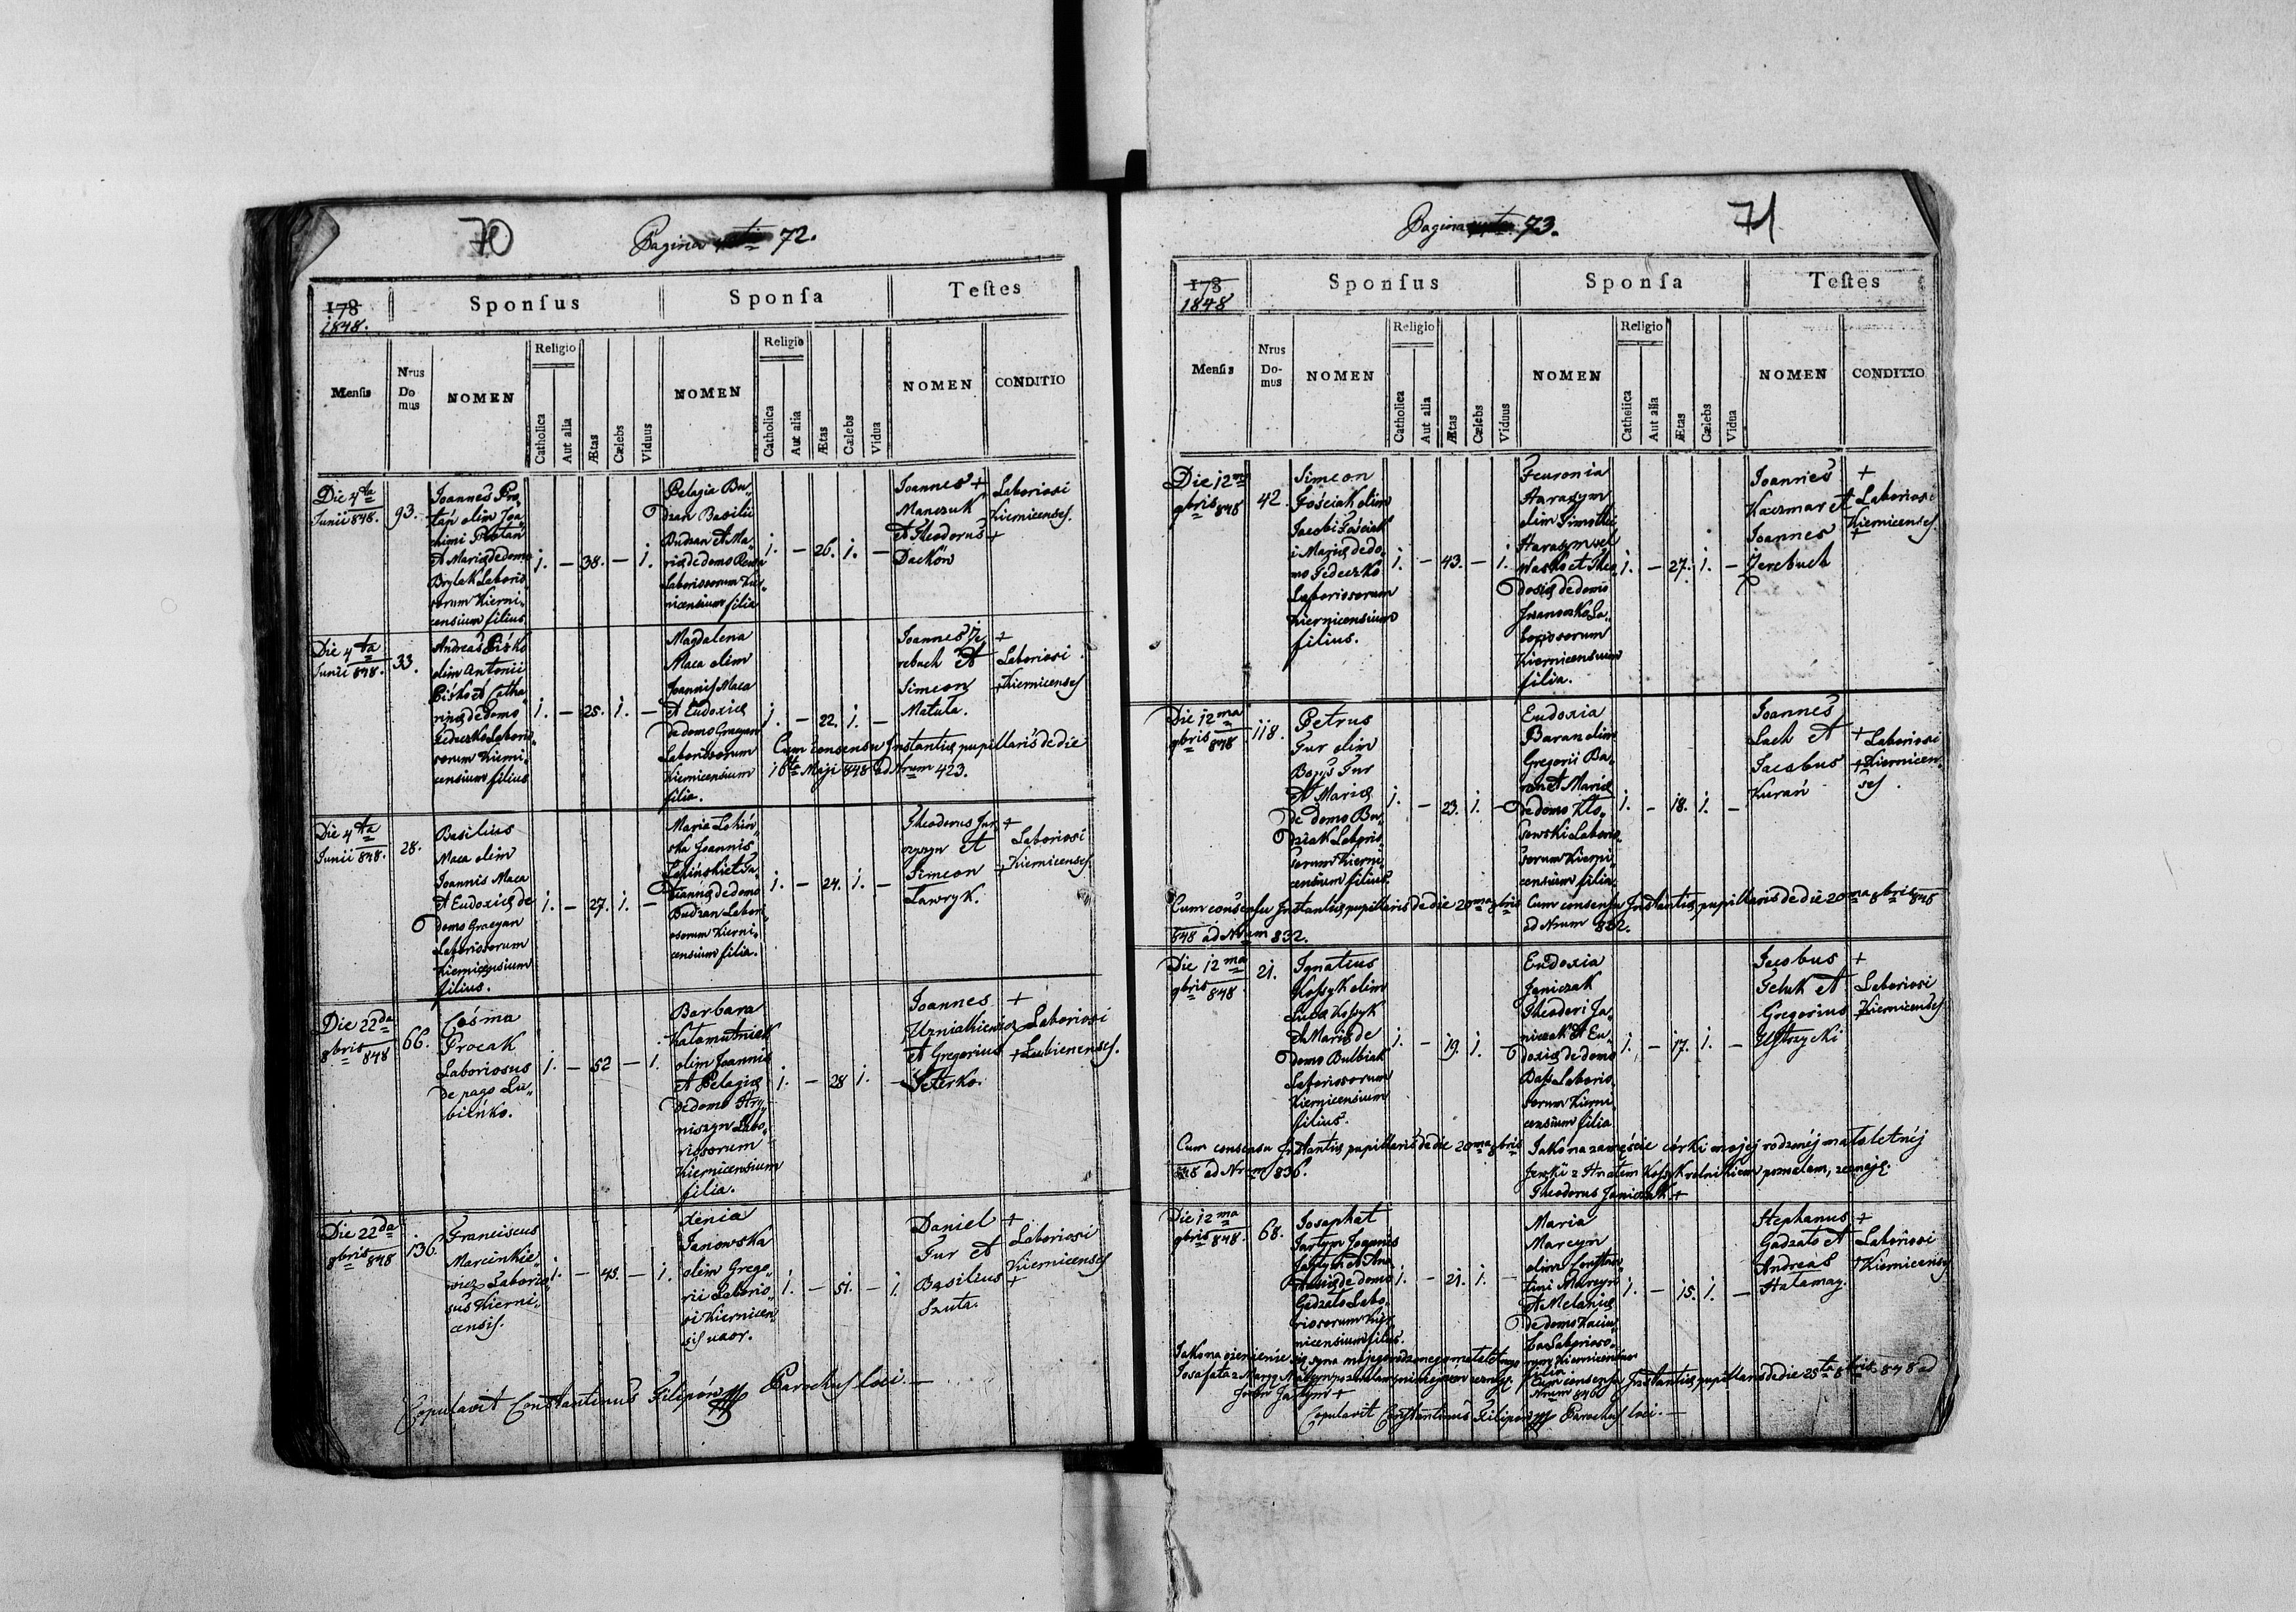 70
Pagina 72.
178
1848.
Sponſus
Sponſa
Teſtes
Menſis
Nrus
Do
mus
NOMEN
Religio
Catholica
Aut alia
Ætas
Cælebs
Viduus
NOMEN
Religio
Catholica
Aut alia
Ætas
Cælebs
Vidua
NOMEN
CONDITIO
Die 4ta
Junii 848.
93.
Joannes Pro„
tap olim Joa„
chimi Protap
et Mariæ de domo
Brylak Laborio
sorum Kierni„
censium filius
1. — 38. — 1.
Pelagia Bu„
dzan Basilii
Budzan et Ma„
riæ de domo
Laboriosorum Kier„
nicensium filia
1. — 26. 1. —
Joannes +
Manczuk
et Theodorus +
Dackow
Laboriosi
Kiernicenses.
Die 4ta
Junii 848.
33.
Andreas Pisko
olim Antonii
Pisko et Catha
rinæ de domo
Fedeczko Laborio„
sorum Kierni„
censium filius
1. — 25. 1. —
Magdalena
Maca olim
Joannis Maca
et Eudoxiæ
de domo Gracyan
Laboriosorum
Kiernicensium
filia.
1. — 22. 1. —
Cum consensu Instantiæ pupillaris de die
16ta Maji 848 ad Nrum 423.
Joannes Je„ +
rebuch et
Simeon +
Matula.
Laboriosi
Kiernicenses
Die 4ta
Junii 848.
28.
Basilius
Maca olim
Joannis Maca
et Eudoxiæ de
domo Gracyan
Laboriosorum
Kiernicensium
filius.
1. — 27. 1. —
Maria Lohin„
ska Joannis
Lohinski et Ta„
tiannæ de domo
Budzan Labori„
osorum Kierni„
censium filia.
1. — 24. 1. —
Theodorus Jur +
czyszyn et
Simeon +
Lawryk.
Laboriosi
Kiernicenses
Die 22da
8bris 848
66.
Cosma
Procak
Laboriosus
de pago Lu„
bieńko.
1. — 52 — 1.
Barbara
Kalamutniak
olim Joannis
et Pelagiæ
de domo Hry„
niszyn Labo„
riosorum
Kiernicensium
filia.
1. — 28 1. —
Joannes +
Uzniakiewicz
et Gregorius +
Seterko.
Laboriosi
Lubienenses.
Die 22da
8bris 848
136.
Franciscus
Marcinkie„
wicz Laborio„
sus Kierni„
censis.
1. — 43. — 1.
Xenia
Janowska
olim Grego„
rii Laborio„
si Kiernicen
sis uxor.
1. — 51. — 1.
Daniel +
Fur et
Basilius +
Szuta.
Laboriosi
Kiernicenses
Copulavit Constantinus Filipów Parochus loci. —
71
Pagina 73.
178
1848
Sponſus
Sponſa
Teſtes
Menſis
Nrus
Do-
mus
NOMEN
Religio
Catholica
Aut alia
Ætas
Cælebs
Viduus
NOMEN
Religio
Catholica
Aut alia
Ætas
Cælebs
Vidua
NOMEN
CONDITIO
Die 12ma
9bris 848
42.
Simeon
Gościak olim
Jacobi Gościak
i Mariæ de do„
mo Fedeczko
Laboriosorum
Kiernicensium
filius.
1. — 43. — 1.
Feuronia
Harasym
olim Timothei
Harasym vel
Wasko et Theo
dosiæ de domo
Iwanowska La„
boriosorum
Kiernicensium
filia.
1. — 27. 1. —
Joannes +
Kaczmar et
Joannes +
Jerebuch
Laboriosi
Kiernicenses
Die 12ma
9bris 848
118.
Petrus
Fur olim
Borys Fur
et Mariæ
de domo Bu„
dziak Laborio„
sorum Kierni„
censium filius.
1. — 23. 1. —
Eudoxia
Baran olim
Gregorii Ba„
ran et Mariæ
de domo Kło„
sowski Laborio„
sorum Kierni„
censium filia
1. — 18. 1. —
Joannes
Lach et +
Jacobus +
Kuran
Laboriosi
Kiernicen„
ses
Cum consensu Instantiæ pupillaris de die 20ma 8bris
848 ad Nrum 832.
Cum consensu Instantiæ pupillaris de die 20ma 8bris 848
ad Nrum 832.
Die 12ma
9bris 848
21.
Ignatius
Kossyk olim
Lucæ Kossyk
et Mariæ de
domo Bulbiak
Laboriosorum
Kiernicensium
filius.
1. — 19. 1. —
Eudoxia
Janiczak
Theodori Ja„
niczak et Eu„
doxiæ de domo
Dass Laborio„
sorum Kierni„
censium filia
1. — 17. 1. —
Jacobus +
Feluk et
Gregorius +
Ustrzycki
Laboriosi
Kiernicenses
Cum consensu Instantiæ pupillaris de die 20ma 8bris
848 ad Nrum 836.
Jako na zamęście córki mojej rodzonéj małoletniéj
Jewki z Hnatem Kossyk rolnikiem pozwalam, zeznaję.
Theodorus Janiczak +
Die 12ma
9bris 848.
68.
Josaphat
Jartym Joannis
Jartym et Ana
stasiæ de domo
Gadzało Labo„
riosorum Kier„
nicensium filius.
1. — 21. 1. —
Maria
Marcyn
olim Constan„
tini Marcyn
et Melaniæ
de domo Kaczu„
ba Laborioso„
rum Kiernicensium
filia
1. — 15. 1. —
Stephanus +
Gadzało et
Andreas +
Hałamay.
Laboriosi
Kiernicenses
Jako na ożenienie się syna mojego rodzonego małoletniego
Josafata z Maryą Marcyn pozwalam niniejszém zeznaję.
Jartym +
Cum consensu Instantiæ pupillaris de die 25ta 8bris 848 ad
Nrum 846
Copulavit Constantinus Filipów Parochus loci. —